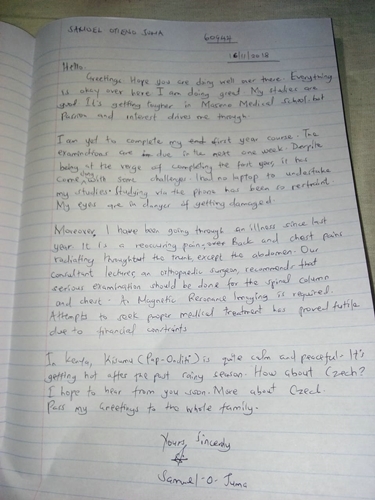 SAMUEL OTIENO JUMA
60444
16/11/2018
Hello,
Greetings. Hope you are doing well over there. Everything
is okay over here I am doing great. My studies are
good. It's getting tougher in Maseno Medical School but
Passion and interest drives me through.
I am yet to complete my first year course. The
examinations are due in the next one week. Despite
being at the verge of completing the first year, it has
come with some challenges. I had no laptop to undertake
my studies. Studying via the phone has been so pertinent.
My eyes are in danger of getting damaged.
Moreover, I have been going through an illness since last
year. It is a reoccuring pain, Back and chest pains
radiating throughout the trunk except the abdomen. Our
consultant lecturer, an orthopaedic surgeon, recommends that
serious examination should be done for the spinal column
and chest. A Magnetic Resonance Imaging is required.
Attempts to seek proper medical treatment has proved futile
due to financial constraints
In Kenya, Kisumu (Pap-Onditi) is quite calm and peaceful. It's
getting hot after the past rainy season. How about Czech?
I hope to hear from you soon. More about Czech.
Pass my Greetings to the whole family.
Yours Sincerely
Samuel-O-Juma